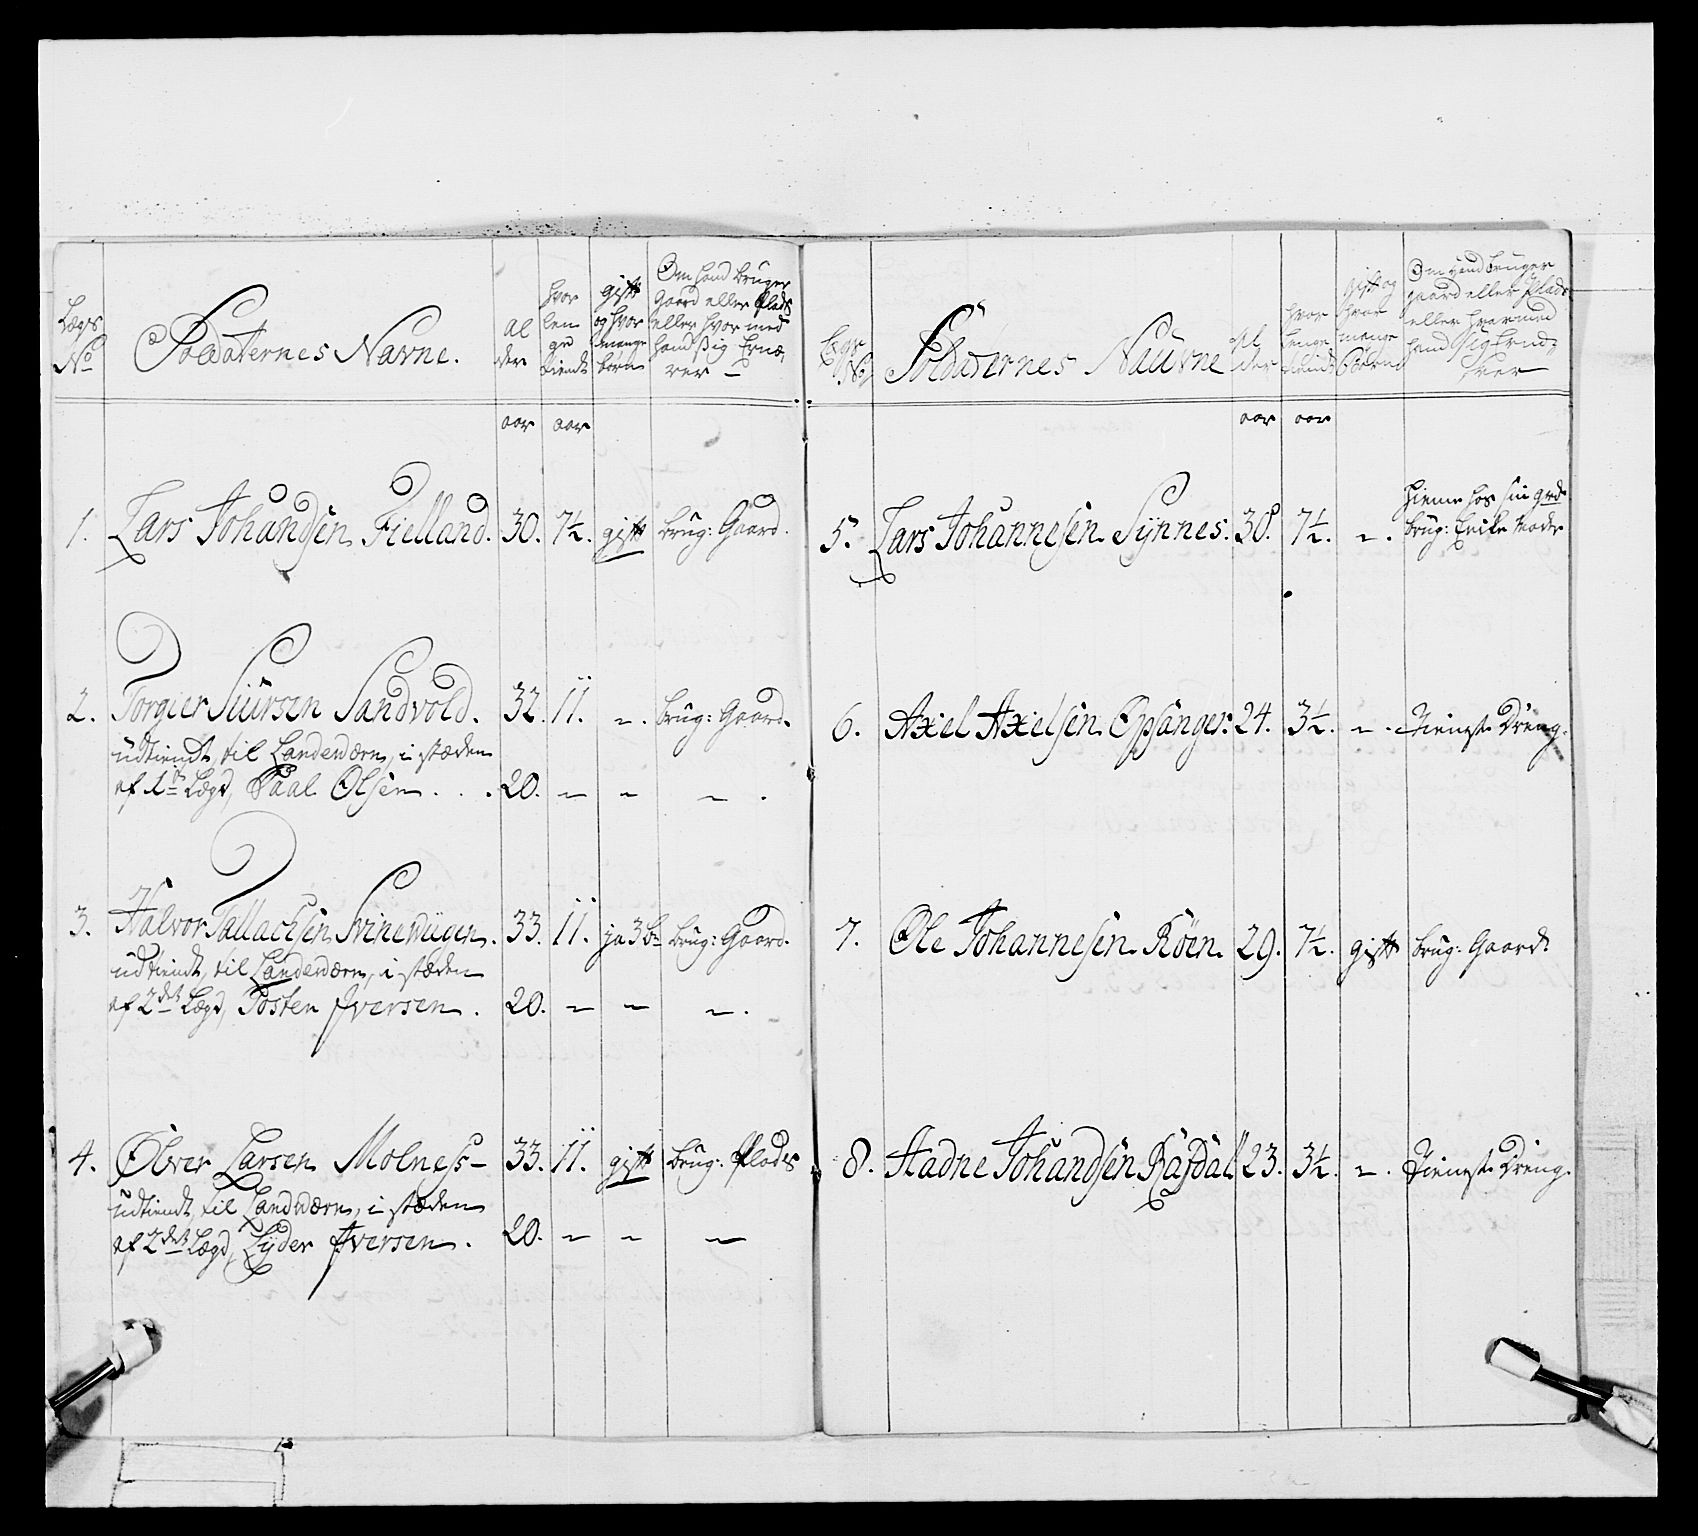 Lægs
No
Soldaternes Navne.
al
der
hvor
len
ge
tient
gift
og hvor
mange
børn
Om hand bruger
Gaard eller Plads
eller hvor med
hand sig Ernæ,
rer
aar aar
1. Lars Johandsen Fielland. 30. 7½. gift brug: Gaard.
2. Torgier Siursen Sandvold. 32. 11. " . brug: Gaard.
udtiendt til Landeværn, i stæden
af 1te Lægd, Paal Olsen . . . 20. " " " .
3. Halvor Tallachsen Svinewiigen. 33. 11. ja 3 b brug: Gaard.
udtiendt, til Landeværn, i stæden
af 2det Lægd, Tosten Iversen. 20. " " " .
4. Olver Larsen Molness 33. 11. gift brug: Plads
udtiendt, til Landværn, i stæden
af 2det Lægd, Lyder Iversen. 20. " " "
Lægs
No
Soldaternes Naune
al
der
hvor
lenge
tient
gift og
hvor
mange
Børn
Om hand bruger
gaard eller Plads
eller hvormed
hand sig Ernæ,
rer
aar aar
5. Lars Johannesen Synnes. 30. 7½. " . hieme hos sin
brug: Enike Moder
6. Axel Axelsen Opsanger. 24. 3½. " . Tieneste Dreng.
7. Ole Johannesen Røen. 29. 7½. gift brug: Gaard
8. Aadne Johandsen Rasdal 23. 3½. " . Tieneste Dreng.